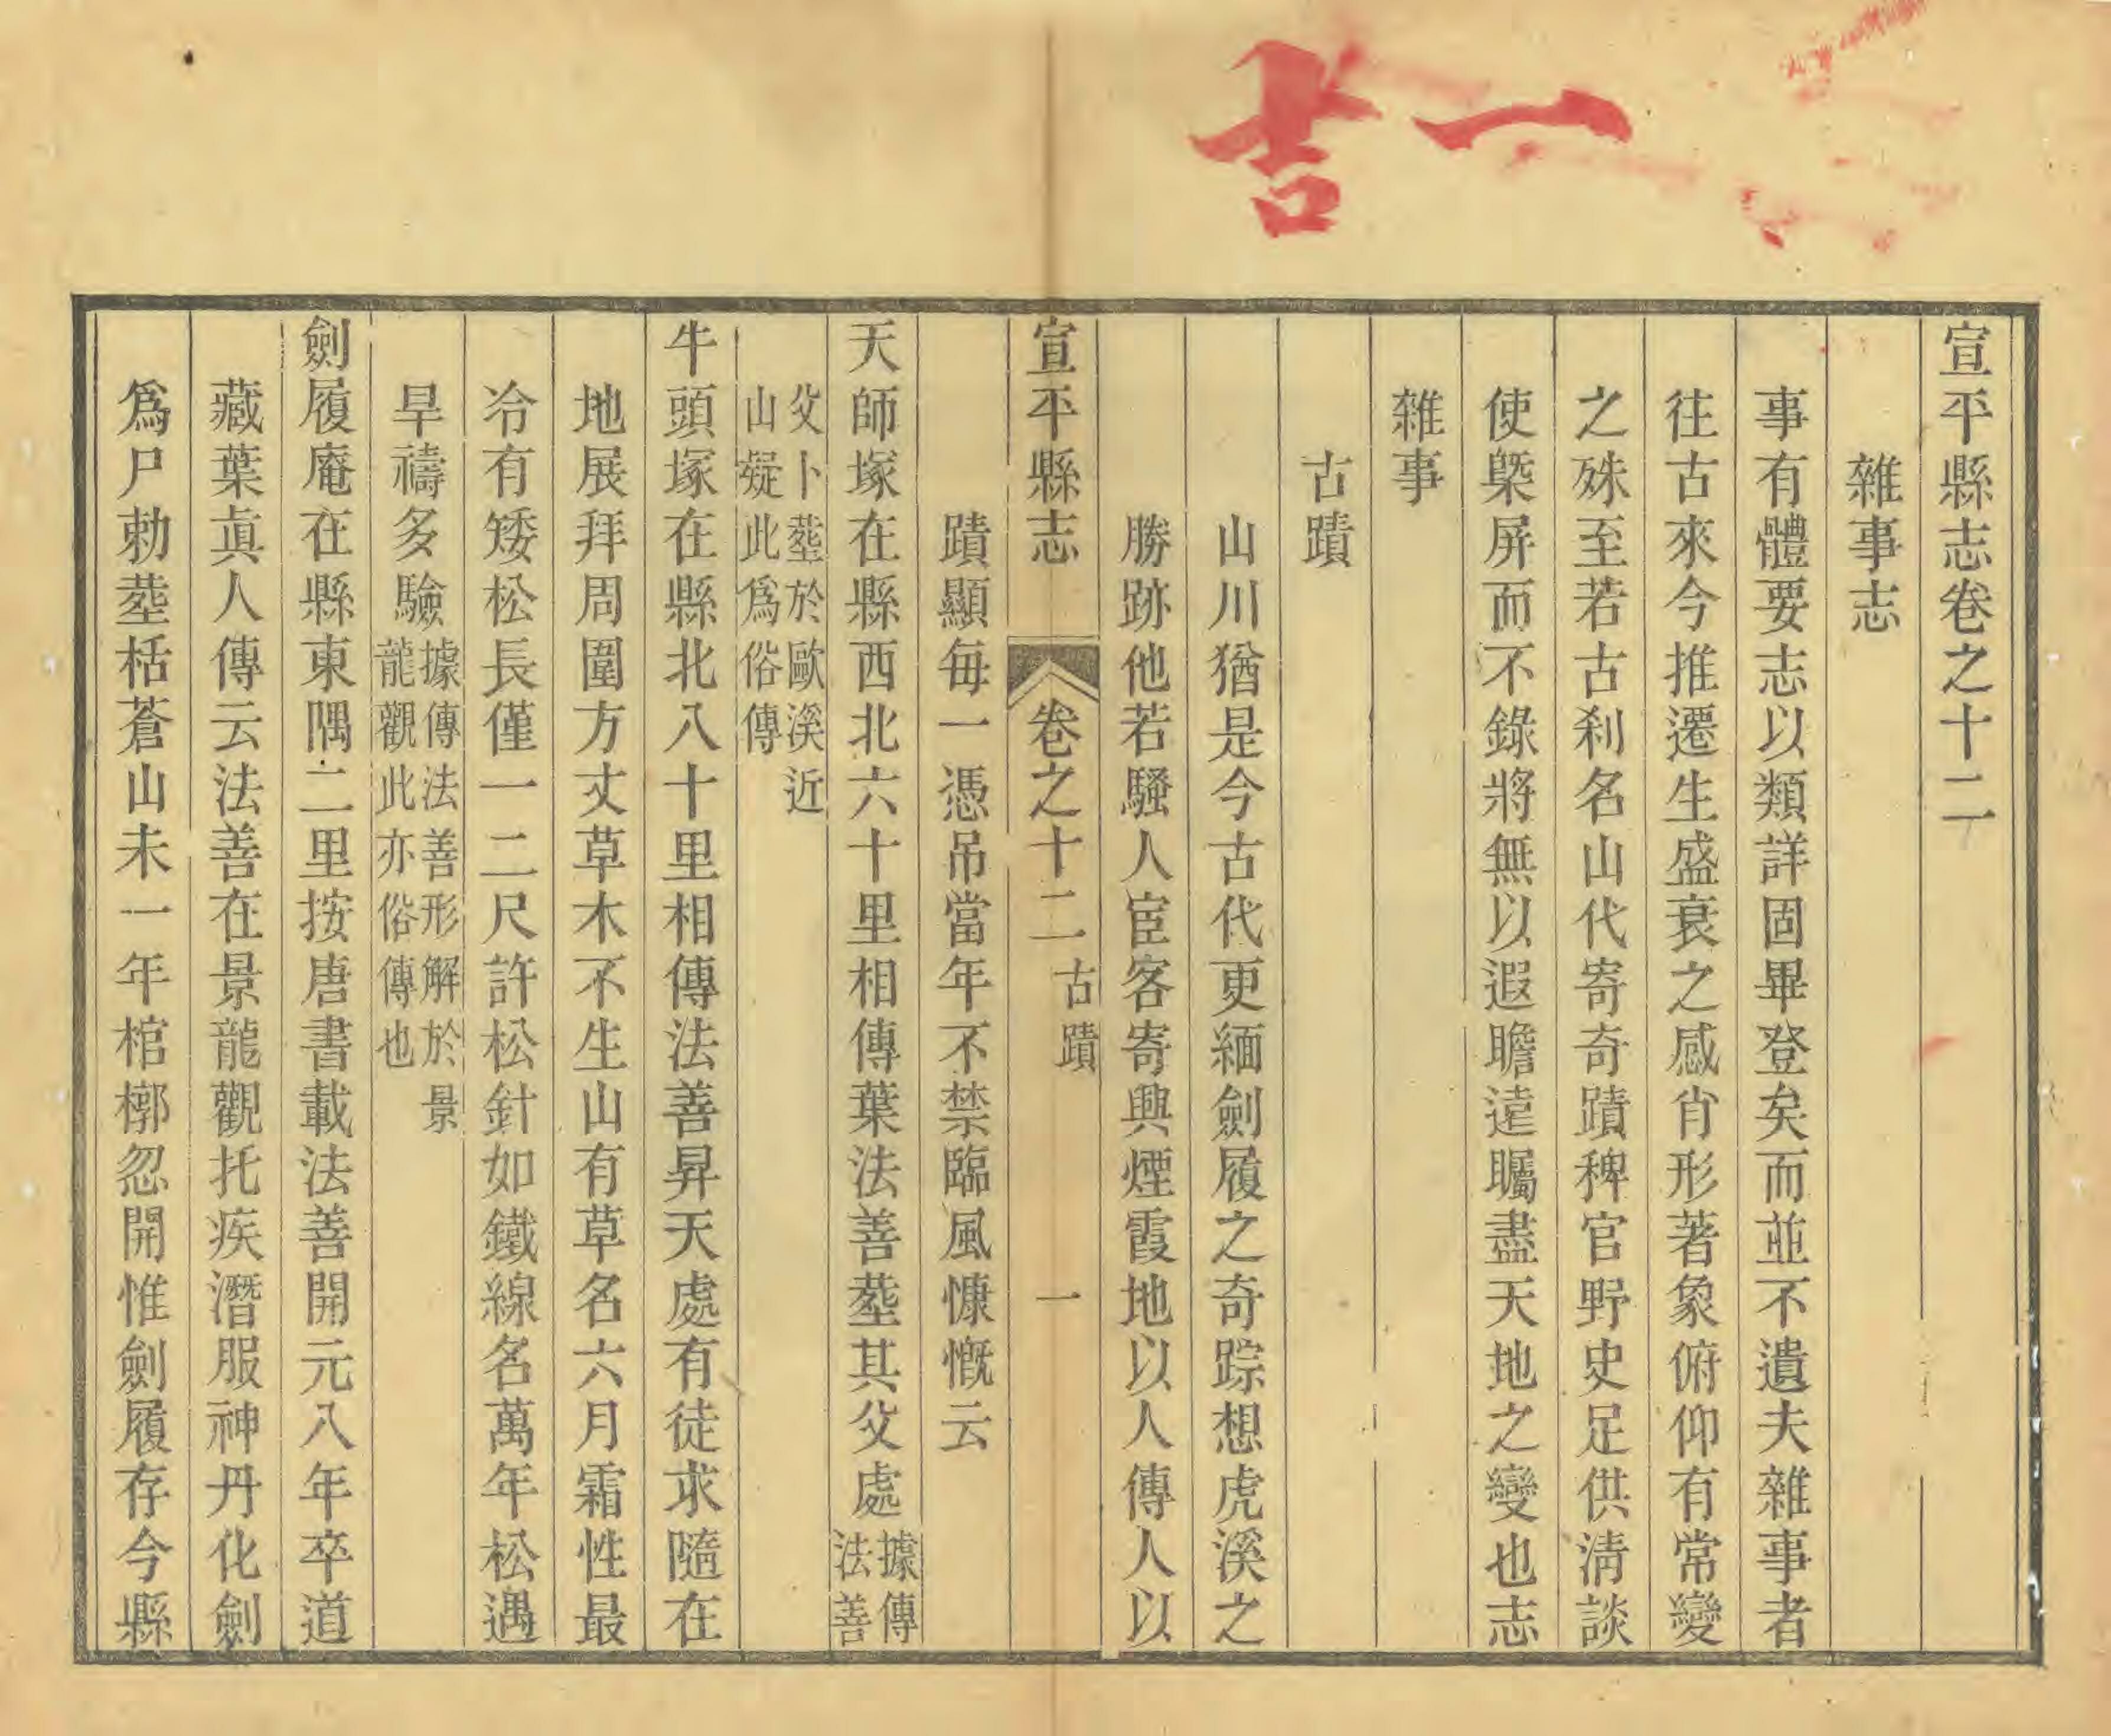 一吉
宣平縣志卷之十二
雜事志
事有體要志以類詳固畢登矣而並不遺夫雜事者
往古來今推遷生盛衰之感肖形著象俯仰有常變
之殊至若古刹名山代寄奇蹟稗官野史足供清談
使槩屏而不錄將無以遐瞻遠矚盡天地之變也志
雜事
古蹟
山川猶是今古代更緬劍履之奇踪想虎溪之
勝跡他若騷人宦客寄興煙霞地以人傳人以
宣平縣志 卷之十二 古蹟 一
蹟顯每一憑吊當年不禁臨風慷慨云
天師塚在縣西北六十里相傳葉法善塟其父處據傳法善
父卜塟於歐溪近山疑此爲俗傳
牛頭塚在縣北八十里相傳法善昇天處有徒求隨在
地展拜周圍方丈草木不生山有草名六月霜性最
冷有矮松長僅一二尺許松針如鐵線名萬年松遇
旱禱多驗據傳法善形解於景龍觀此亦俗傳也
劍履庵在縣東隅二里按唐書載法善開元八年卒道
藏葉眞人傳云法善在景龍觀托疾潛服神丹化劍
爲尸勅塟栝蒼山未一年棺槨忽開惟劍履存今縣